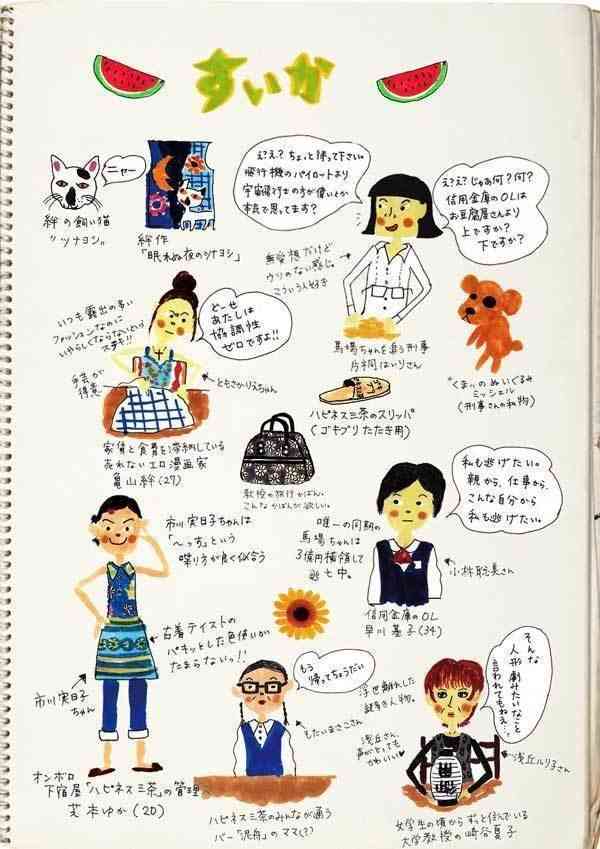 すいか
ニャー
絆の飼い猫
"ツナヨシ"
絆作
「眠れぬ夜のツナヨシ」
え?え?ちょっと待って下さい。
飛行機のパイロットより
宇宙飛行士の方が偉いとか
本気で思ってます?
え?え?じゃあ何?何?
信用金庫のOLは
お豆腐屋さんより
上ですか?
下ですか?
無愛想だけど
ウソのない感じ。
こういう人好き
馬場ちゃんを追う刑事
片桐はいりさん
"くまぃのぬいぐるみ
ミッシェル
(刑事さんの私物)
いつも露出の多い
ファッションなのに
いやらしくならないという
ステキ!!
手芸が
得意
どーせ
あたしは
協調性
ゼロですよ!!
ともさかりえちゃん
家賃と食費を滞納している
売れないエロ漫画家
亀山絆(27)
ハピネス三茶のスリッパ
(ゴキブリたたき用)
教授の旅行かばん。
こんなかばんが欲しい。
私も逃げたい。
親から、仕事から、
こんな自分から
私も逃げたい。
唯一の同期の
馬場ちゃんは
3億円横領して
逃亡中。
小林聡美さん
信用金庫のOL
早川基子(34)
市川実日子ちゃんは
「〜っち」という
喋り方が良く似合う
古着テイストの
パキッとした色使いが
たまらないっ!!
市川実日子
ちゃん
オンボロ
下宿屋「ハピネス三茶」の管理人
芝本ゆか(20)
もう
帰ってちょうだい
もたいまさこさん
ハピネス三茶のみんなが通う
バー「泥舟」のママ(??)
浮世離れした
謎多き人物。
浅丘さん、
声がとっても
かわいい♥
そんな
人形劇みたいなこと
言われてもねぇ…
浅丘ルリ子さん
女学生の頃からずっと住んでいる
大学教授の崎谷夏子